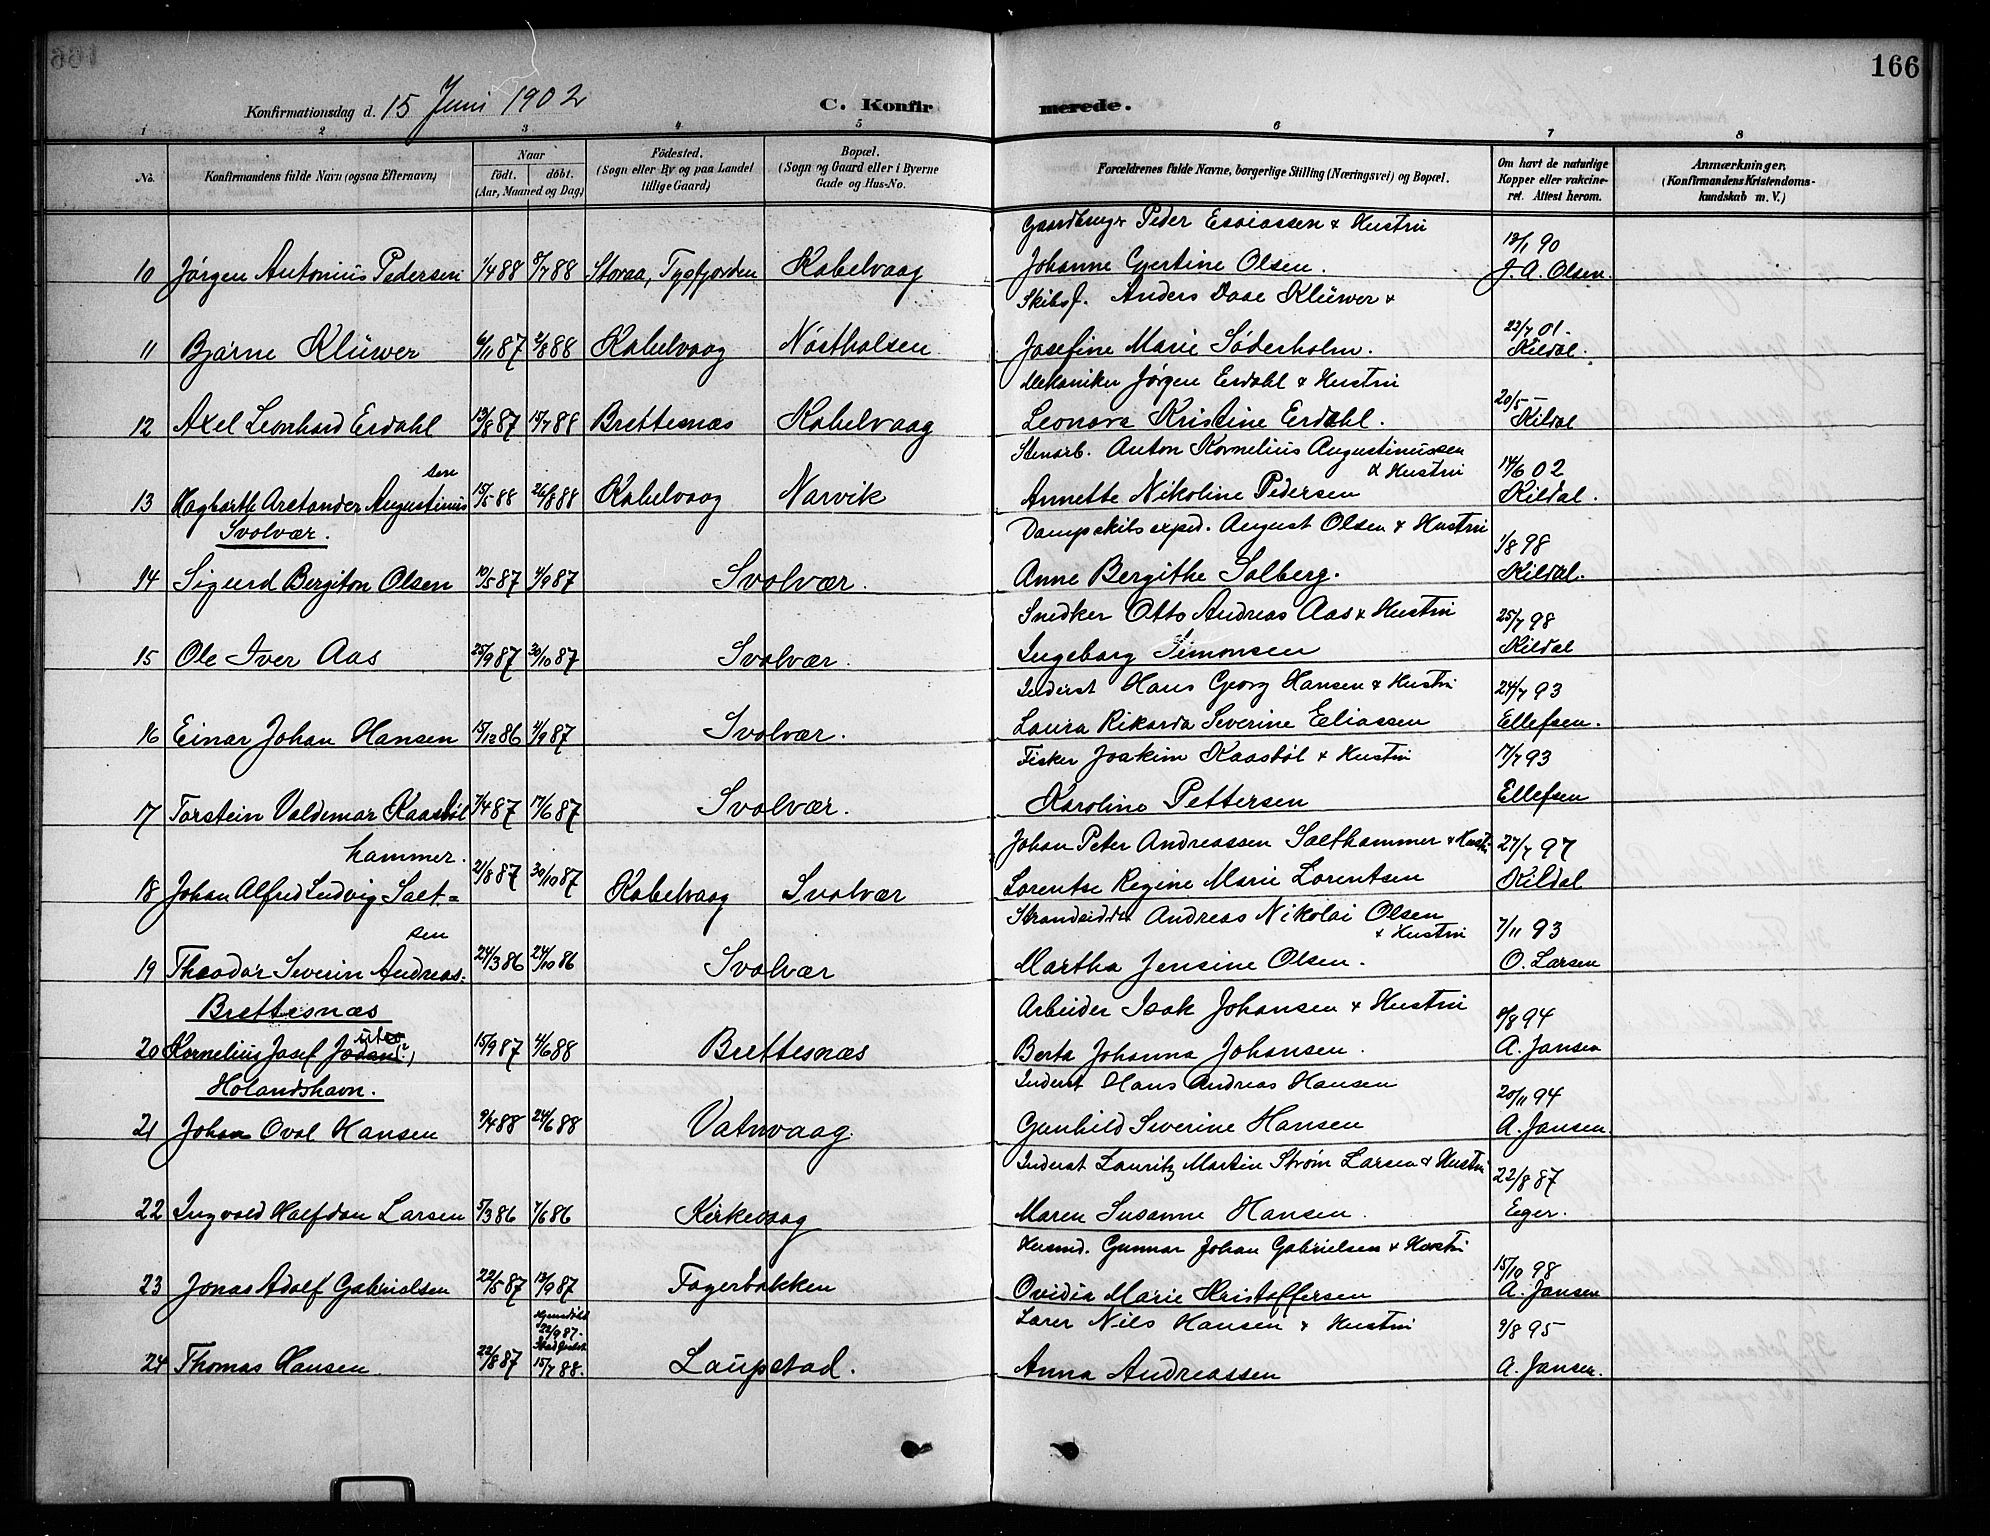 166
Konfirmationsdag d. 15 Juni 1902
C. Konfirmerede.
1 2 3 4 5 6 7 8
No. Konfirmandens fulde Navn (ogsaa Efternavn) Naar født. døbt. (Aar, Maaned og Dag) Fødested. (Sogn eller By og paa Landet tillige Gaard) Bopæl. (Sogn og Gaard eller i Byerne Gade og Hus-No. Forældrenes fulde Navne, borgerlige Stilling (Næringsvei) og Bopæl. Om havt de naturlige Kopper eller vakcineret. Attest herom. Anmærkninger, (Konfirmandens Kristendomskundskab m. V.)
Gaardbruger Peder Esaiassen & Hustru
10 Jørgen Antonius Pedersen 1/4 88 8/7 88 Storaa, Tysfjorden Kabelvaag Johanne Gjertine Olsen. 13/1 90 J. A. Olsen.
Skibsf. Anders Daae Klüwer &
11 Bjarne Klüwer 6/11 87 2/8 88 Kabelvaag Nøstholsen Josefine Marie Søderholm. 22/7 01. Kildal.
Mekaniker Jørgen Erdahl & Hustru
12 Axel Leonhard Erdahl 13/8 87 15/7 88 Brettesnæs Kabelvaag Leonora Kristine Erdahl. 20/5 – Kildal
Stenarb. Anton Kornelius Augustinussen & Hustru
13 Hagbarth Aretander Augustinussen 15/5 88 26/8 88 Kabelvaag Narvik Annette Nikoline Pedersen 14/6 02 Kildal.
Svolvær.
Dampskibsexped. August Olsen & Hustru
14 Sigurd Bergiton Olsen 10/5 87 4/9 87 Svolvær. Anne Bergithe Solberg. 1/8 98 Kildal.
Snedker Otto Andreas Aas & Hustru
15 Ole Iver Aas 25/9 87 30/10 87 Svolvær. Ingeborg Simonsen 25/7 98 Kildal
Inderst Hans Georg Hansen & Hustru
16 Einar Johan Hansen 15/12 86 4/9 87 Svolvær. Laura Rikarda Severine Eliassen 24/7 93 Ellefsen.
Fisker Joakim Kaasbøl & Hustru
17 Torstein Valdemar Kaasbøl 7/4 87 17/6 87 Svolvær. Karoline Pettersen 17/7 93 Ellefsen
Johan Peter Andreassen Salthammer & Hustru
18 Johan Alfred Ludvig Salt=hammer. 21/8 87 30/10 87 Kabelvaag Svolvær Lorentse Regine Marie Lorentsen 27/7 97 Kildal
Strandsidder Andreas Nikolai Olsen & Hustru
19 Theodor Severin Andreassen 24/3 86 24/10 86 Svolvær Martha Jensine Olsen. 7/11 93 O. Larsen
Brettesnæs
Arbeider Isak Johansen & Hustru
20 Kornelius Josef 15/9 87 4/6 88 Brettesnæs Berta Johanna Johansen. 8/8 94 A. Jansen
Holandshavn.
Inderst Hans Andreas Hansen
21 Johan Oval Hansen 9/4 88 24/6 88 Vatnvaag. Gunhild Severine Hansen 20/11 94 A. Jansen.
Inderst Lauritz Martin Strøm Larsen & Hustru
22 Ingvald Halfdan Larsen 5/3 86 7/6 86 Kirkevaag Maren Susanne Hansen. 22/8 87 Eger.
Husmd. Gunnar Johan Gabrielsen & Hustru
23 Jonas Adolf Gabrielsen 22/5 87 13/9 87 Fagerbakken Ovidia Marie Kristoffersen 15/10 98 A. Jansen
Hjemdøbt 22/9 87. Stadfæstet
Lærer Nils Hansen & Hustru
24 Thomas Hansen 22/8 87 15/7 88. Laupstad. Anna Andreassen 9/8 95 A. Jansen.